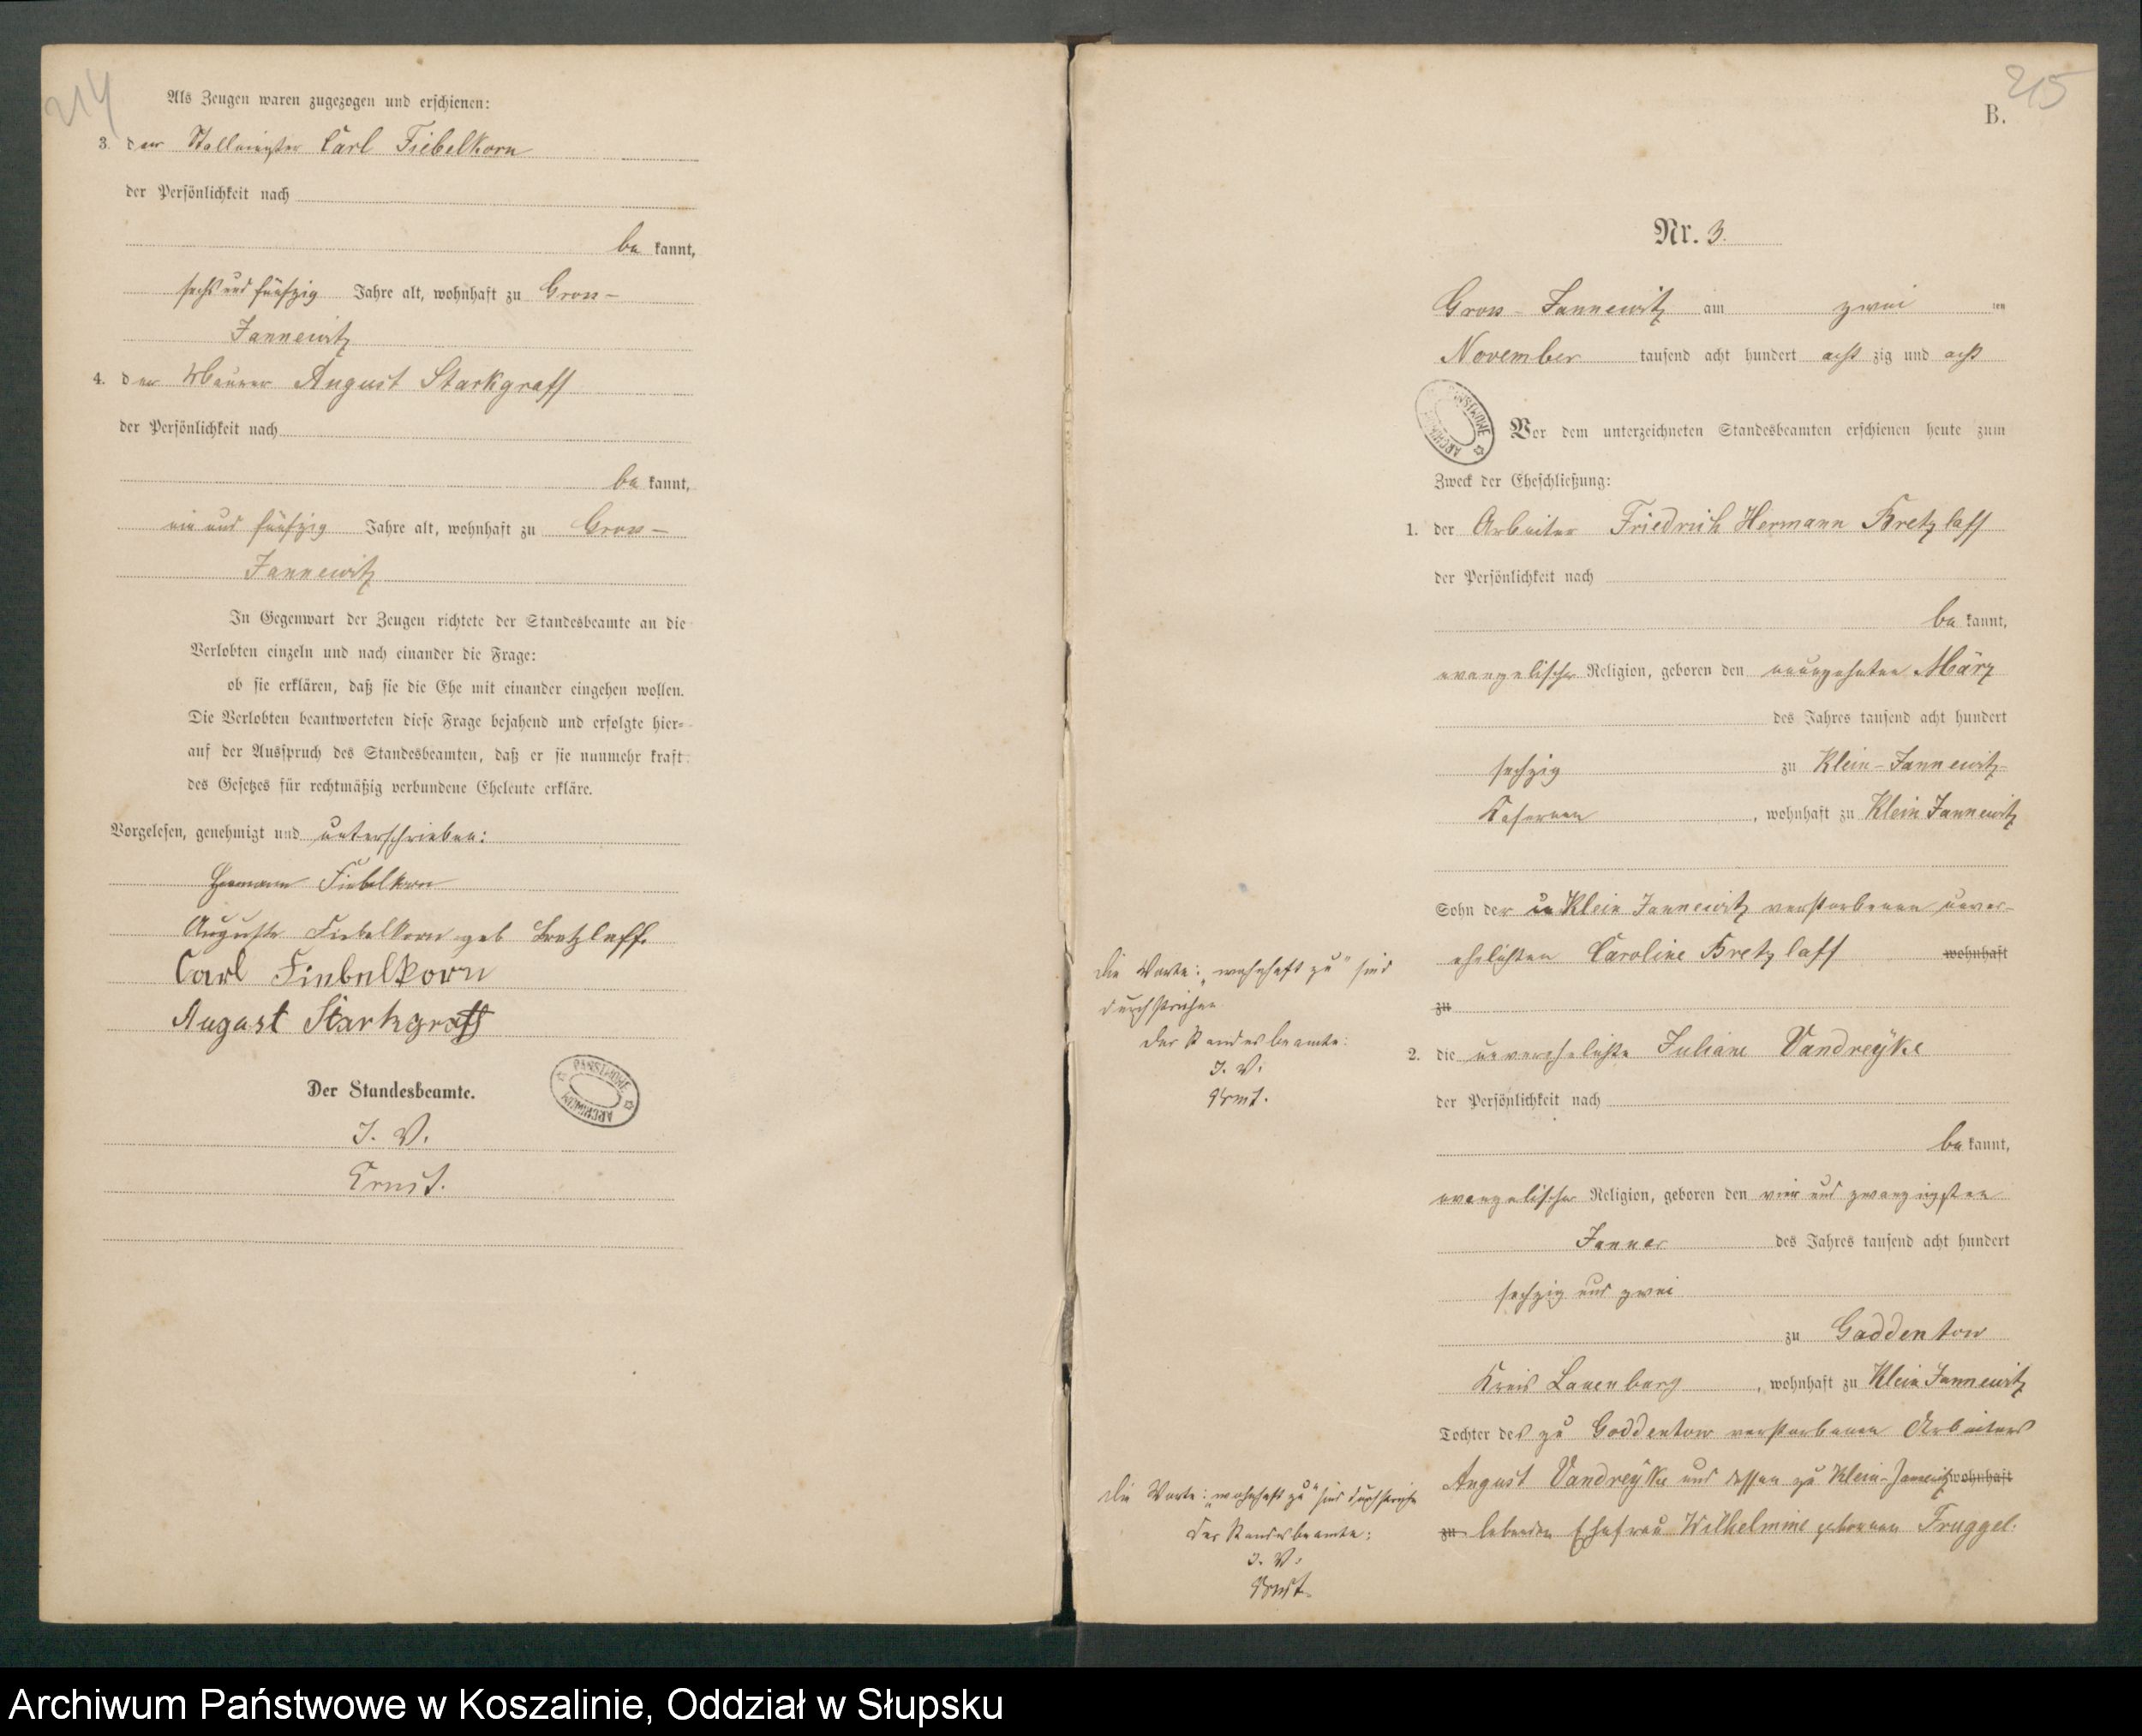 214
Als Zeugen waren zugezogen und erschienen:
3. der Stallmeister Carl Fiebelkorn
der Persönlichkeit nach
be kannt,
sechs und fünfzig Jahre alt, wohnhaft zu Gross-
Jannewitz
4. der Maurer August Starkgraff
der Persönlichkeit nach
be kannt,
ein und fünfzig Jahre alt, wohnhaft zu Gross-
Jannewitz
In Gegenwart der Zeugen richtete der Standesbeamte an die
Verlobten einzeln und nach einander die Frage:
ob sie erklären, daß sie die Ehe mit einander eingehen wollen.
Die Verlobten beantworteten diese Frage bejahend und erfolgte hier-
auf der Ausspruch des Standesbeamten, daß er sie nunmehr kraft
des Gesetzes für rechtmäßig verbundene Eheleute erkläre.
Vorgelesen, genehmigt und unterschrieben:
Hermann Fiebelkorn
Auguste Fiebelkorn geb Bretzlaff.
Carl Fiebelkorn
August Starkgraff
Der Standesbeamte.
J. V.
Ernst.
PAŃSTWOWE ARCHIWUM
215
B.
Nr. 3.
Gross-Jannewitz am zwei ten
November tausend acht hundert acht zig und acht
PAŃSTWOWE ARCHIWUM
Vor dem unterzeichneten Standesbeamten erschienen heute zum
Zweck der Eheschließung:
1. der Arbeiter Friedrich Hermann Bretzlaff
der Persönlichkeit nach
be kannt,
evangelischer Religion, geboren den neunzehnten März
des Jahres tausend acht hundert
sechzig zu Klein-Jannewitz-
wohnhaft zu Klein Jannewitz
Sohn der in Klein Jannewitz verstorbenen unver-
ehelichten Caroline Bretzlaff wohnhaft
zu
Die Worte: „wohnhaft zu" sind
durchstrichen
Der Standesbeamte:
J. V.
Ernst.
2. die unverehelichte Juliane Vandreÿke
der Persönlichkeit nach
be kannt,
evangelischer Religion, geboren den vier und zwanzigsten
Januar des Jahres tausend acht hundert
sechzig und zwei
zu Goddentow
Kreis Lauenburg, wohnhaft zu Klein Jannewitz
Tochter des zu Goddentow verstorbenen Arbeiters
August Vandreÿke und dessen zu Klein-Jannewitz wohnhaft
zu lebenden Ehefrau Wilhelmine geborenen Fruggel.
Die Worte: „wohnhaft zu" sind durchstrichen
Der Standesbeamte:
J. V.
Ernst.
Archiwum Państwowe w Koszalinie, Oddział w Słupsku